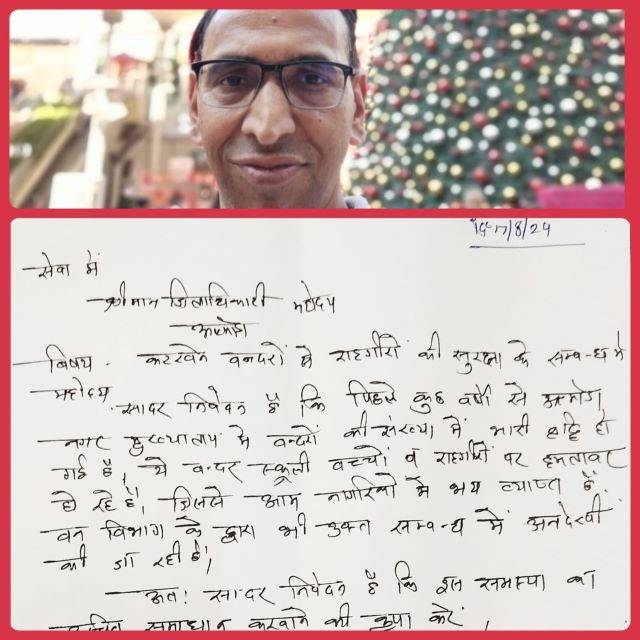 17/8/24
सेवा में
श्रीमान जिलाधिकारी महोदय
अल्मोड़ा
विषय - कटखने वानरों से राहगीरों की सुरक्षा के सम्बन्ध में
महोदय
सादर निवेदन है कि पिछले कुछ वर्षों से अल्मोड़ा
नगर मुख्यालय में बन्दरों की संख्या में भारी वृद्धि हो
गई है, ये बन्दर स्कूली बच्चों व राहगीरों पर हमलावर
हो रहे हैं, जिससे आम नागरिकों में भय व्याप्त है.
वन विभाग के द्वारा भी उक्त सम्बन्ध में अनदेखी
की जा रही है,
अतः सादर निवेदन है कि इस समस्या का
उचित समाधान करवाने की कृपा करें,